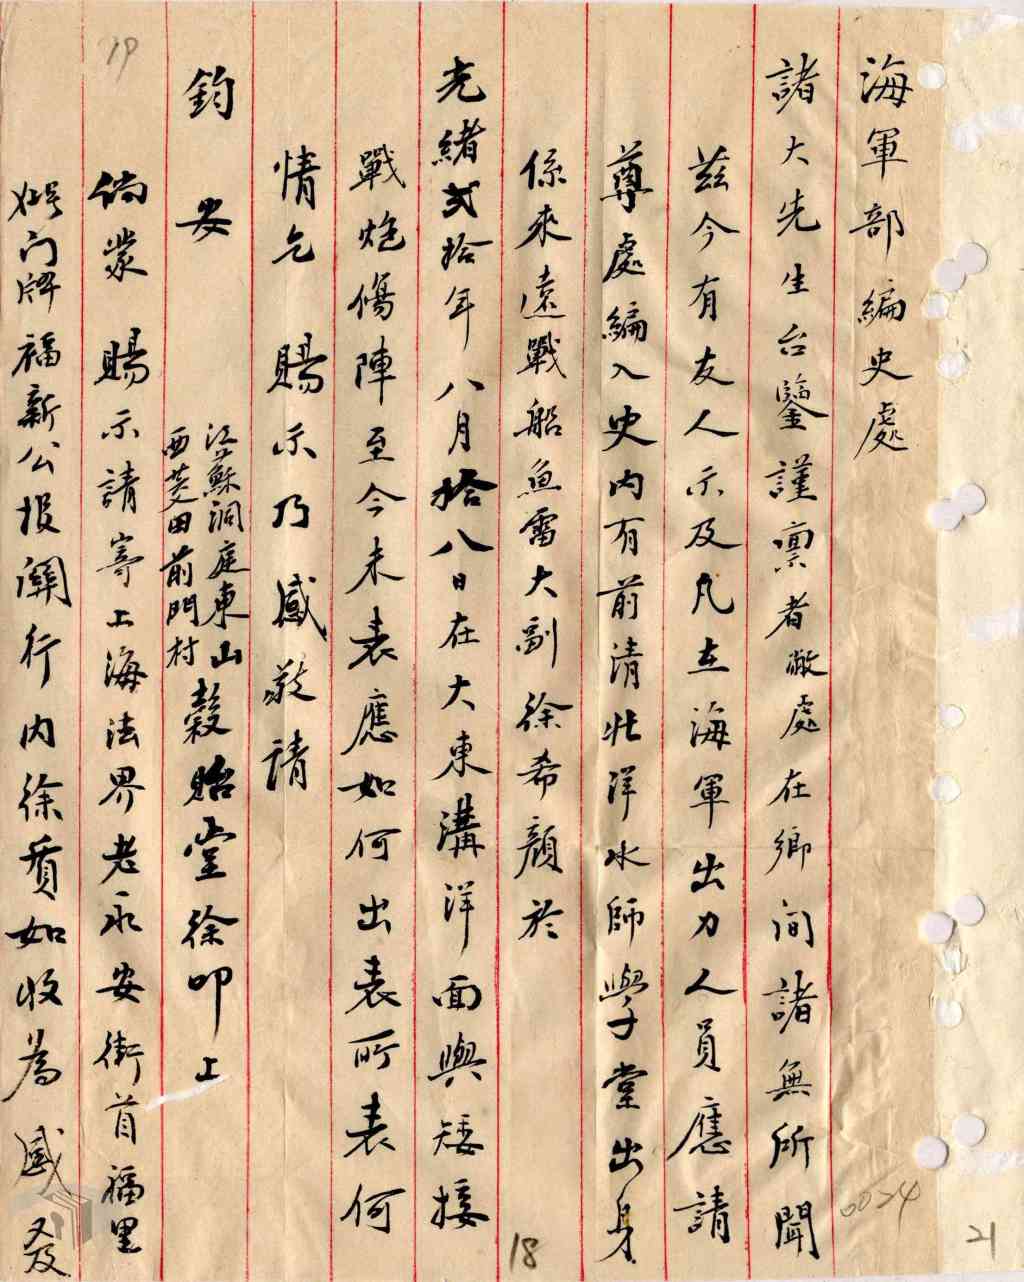 海軍部編史處
諸大先生台鑒謹禀者敝處在鄉间諸無所聞
茲今有友人示及凡在海軍出力人員應請
尊處編入史內有前清北洋水師學堂出身
係來遠戰船魚雷大副徐希顏於
光緒弍拾年八月拾八日在大東溝洋面與矮接
戰炮傷陣至今未表應如何出表所表何
情乞賜示乃感敬請
鈞安
江蘇洞庭東山
西菱田前門村
穀貽堂徐叩上
倘蒙賜示請寄上海法界老永安街首福里
門牌福新公报關行内徐質如收為感又及
19
18
0024
21